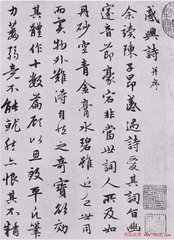 感興詩 并序
余讀陳子昂感遇詩愛其詞旨幽
邃音節豪宕非當世詞人所及如
丹砂空青金膏水碧雖近乏世用
而實物外難得自然之奇寶欲效
其體作十數篇顧以思致平凡筆
力萎弱竟不能就然亦恨其不精